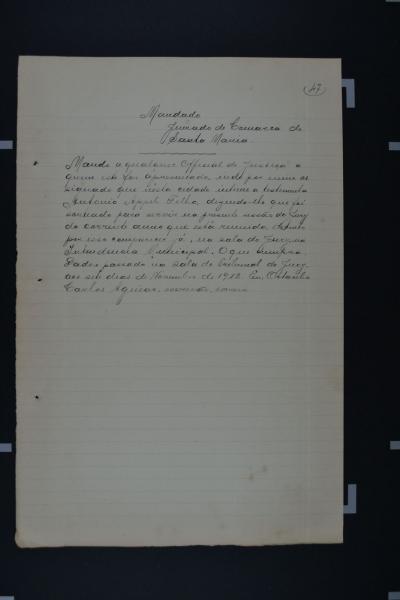 47
Mandado
Juizado de Comarca de
Santa Maria.
Mando a qualquer Official de Justiça a
quem este for apresentado, indo por mim as
signado que nesta cidade intime a testemunha
Antonio Appel Filho, dizendo-lhe que foi
sorteado para servir na presente sessão de Jury
do corrente anno que está reunido, devendo
por isso comparecer já, na sala do Jury na
Intendencia Municipal. O que cumpra.
Dado e passado na sala do tribunal do Jury,
aos seis dias de Novembro de 1912. Eu,
Carlos escrivão,